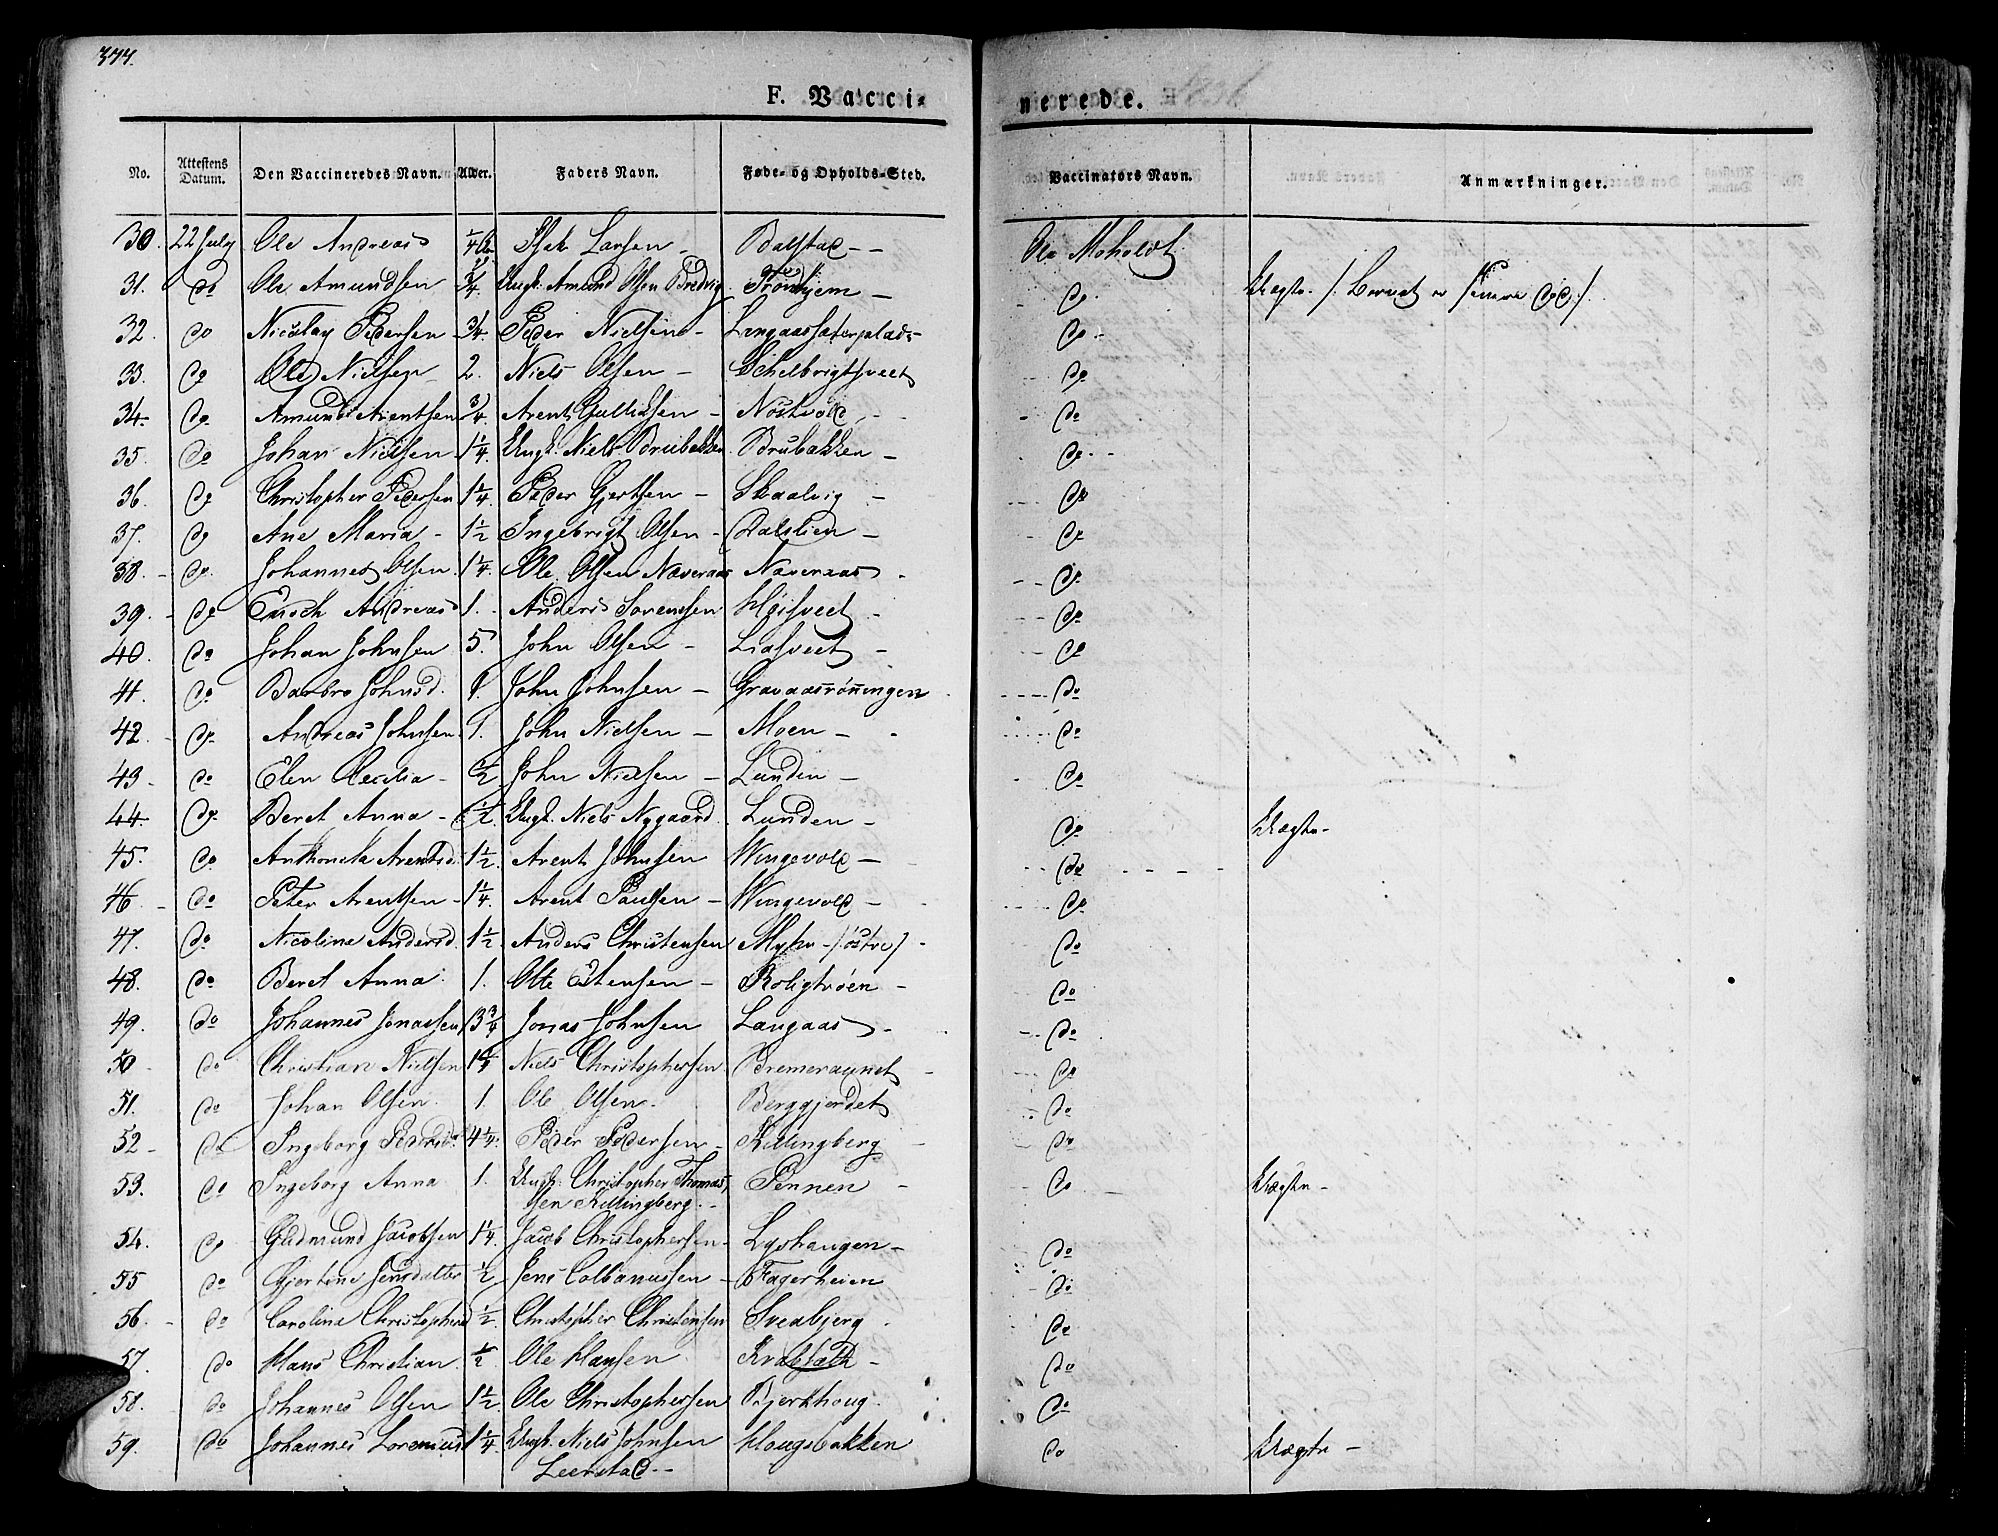 377.
F. Vacci-
nerede.
No. Attestens Datum. Den Vaccineredes Navn. Alder. Faders Navn. Føde- og Opholds-Sted. Vaccinators Navn. Anmærkninger.
30. 22 July Ole Andreas Isak Larsen - Balstad - - Ole Moholdt
31. do Ole Amundsen 3/4. Ungk. Amund Olsen Trondhjem - do Uægte. /: Barnet er senere død :/
32. do Nicolay Pedersen 3/4. Peder Nielsen - Langaassæterplads - do
33. do Ole Nielsen 2. Niels Olsen - do
34. do Amund Arentsen 3/4. Arent - Nøstvold - do
35. do Johan Nielsen 1 1/4. Ungk. Niels Brubakken Brubakken - do
36. do Christopher Pedersen 1 1/4. Peder Gjertsen - Skaalvig - do
37. do Ane Maria - 1 1/2 Ingebrigt Olsen - Dalslien - do
38. do Johannes Olsen 1 1/4. Ole Olsen Naveraas Naveraas - do
39. do Enoch Andreas 1. Anders Sørensen Høisveet - do
40. do Johan Johnsen 5. John Olsen - Liasveet - do
41. do Barbro Johnsd. 1. John Johnsen - Gravaasrønningen do
42. do Andreas Johnsen 1. John Nielsen - Moen - do
43. do Elen Cecilia - 1/2 John Nielsen - Lunden - do
44. do Beret Anna - 1/2 Ungk. Niels Nygaard Lunden - do Uægte -
45. do Anthoneta Arentsd. 1 1/2. Arent Johnsen Wingevold - do
46. do Peter Arentsen - 1 1/4. Arent Paulsen - Wingevold - do
47. do Nicoline Andersd. 1 1/2 Anders Christensen Myhr - (østre) do
48. do Beret Anna 1. Ole Estensen - Roligtrøen - do
49. do Johannes Jonassen 3 3/4 Jonas Johnsen Langaas - do
50 do Christian Nielsen 1 1/4 Niels Christophersen Bremeraunet do
51. do Johan Olsen. 1. Ole Olsen. Berggjerdet do
52 - do Ingeborg Pedersd. 4 1/4. Peder Pedersen - Killingberg - do
53. do Ingeborg Anna 1. Ungk. Christopher Thomas- Pennen - do Uægte -
sen Killingberg. -
54. do Gudmund Jacobsen 1 1/4. Jacob Christophersen - Lyshaugen - do
55 do Gjertine Jensdatter 1/2 Jens Colbanussen - Fagerheien do
56. - do Carolina Christophersd 1/2. Christopher Christensen Sveabjerg. do
57. do Hans Christian 1/2 Ole Hansen. - do
58. do Johannes Olsen 1 1/2. Ole Christophersen Bjerkhoug. do
59. do Johannes Lorentius 1 1/4. Ungk. Niels Johnsen Hougsbakken do Uægte -
Leerstad - -